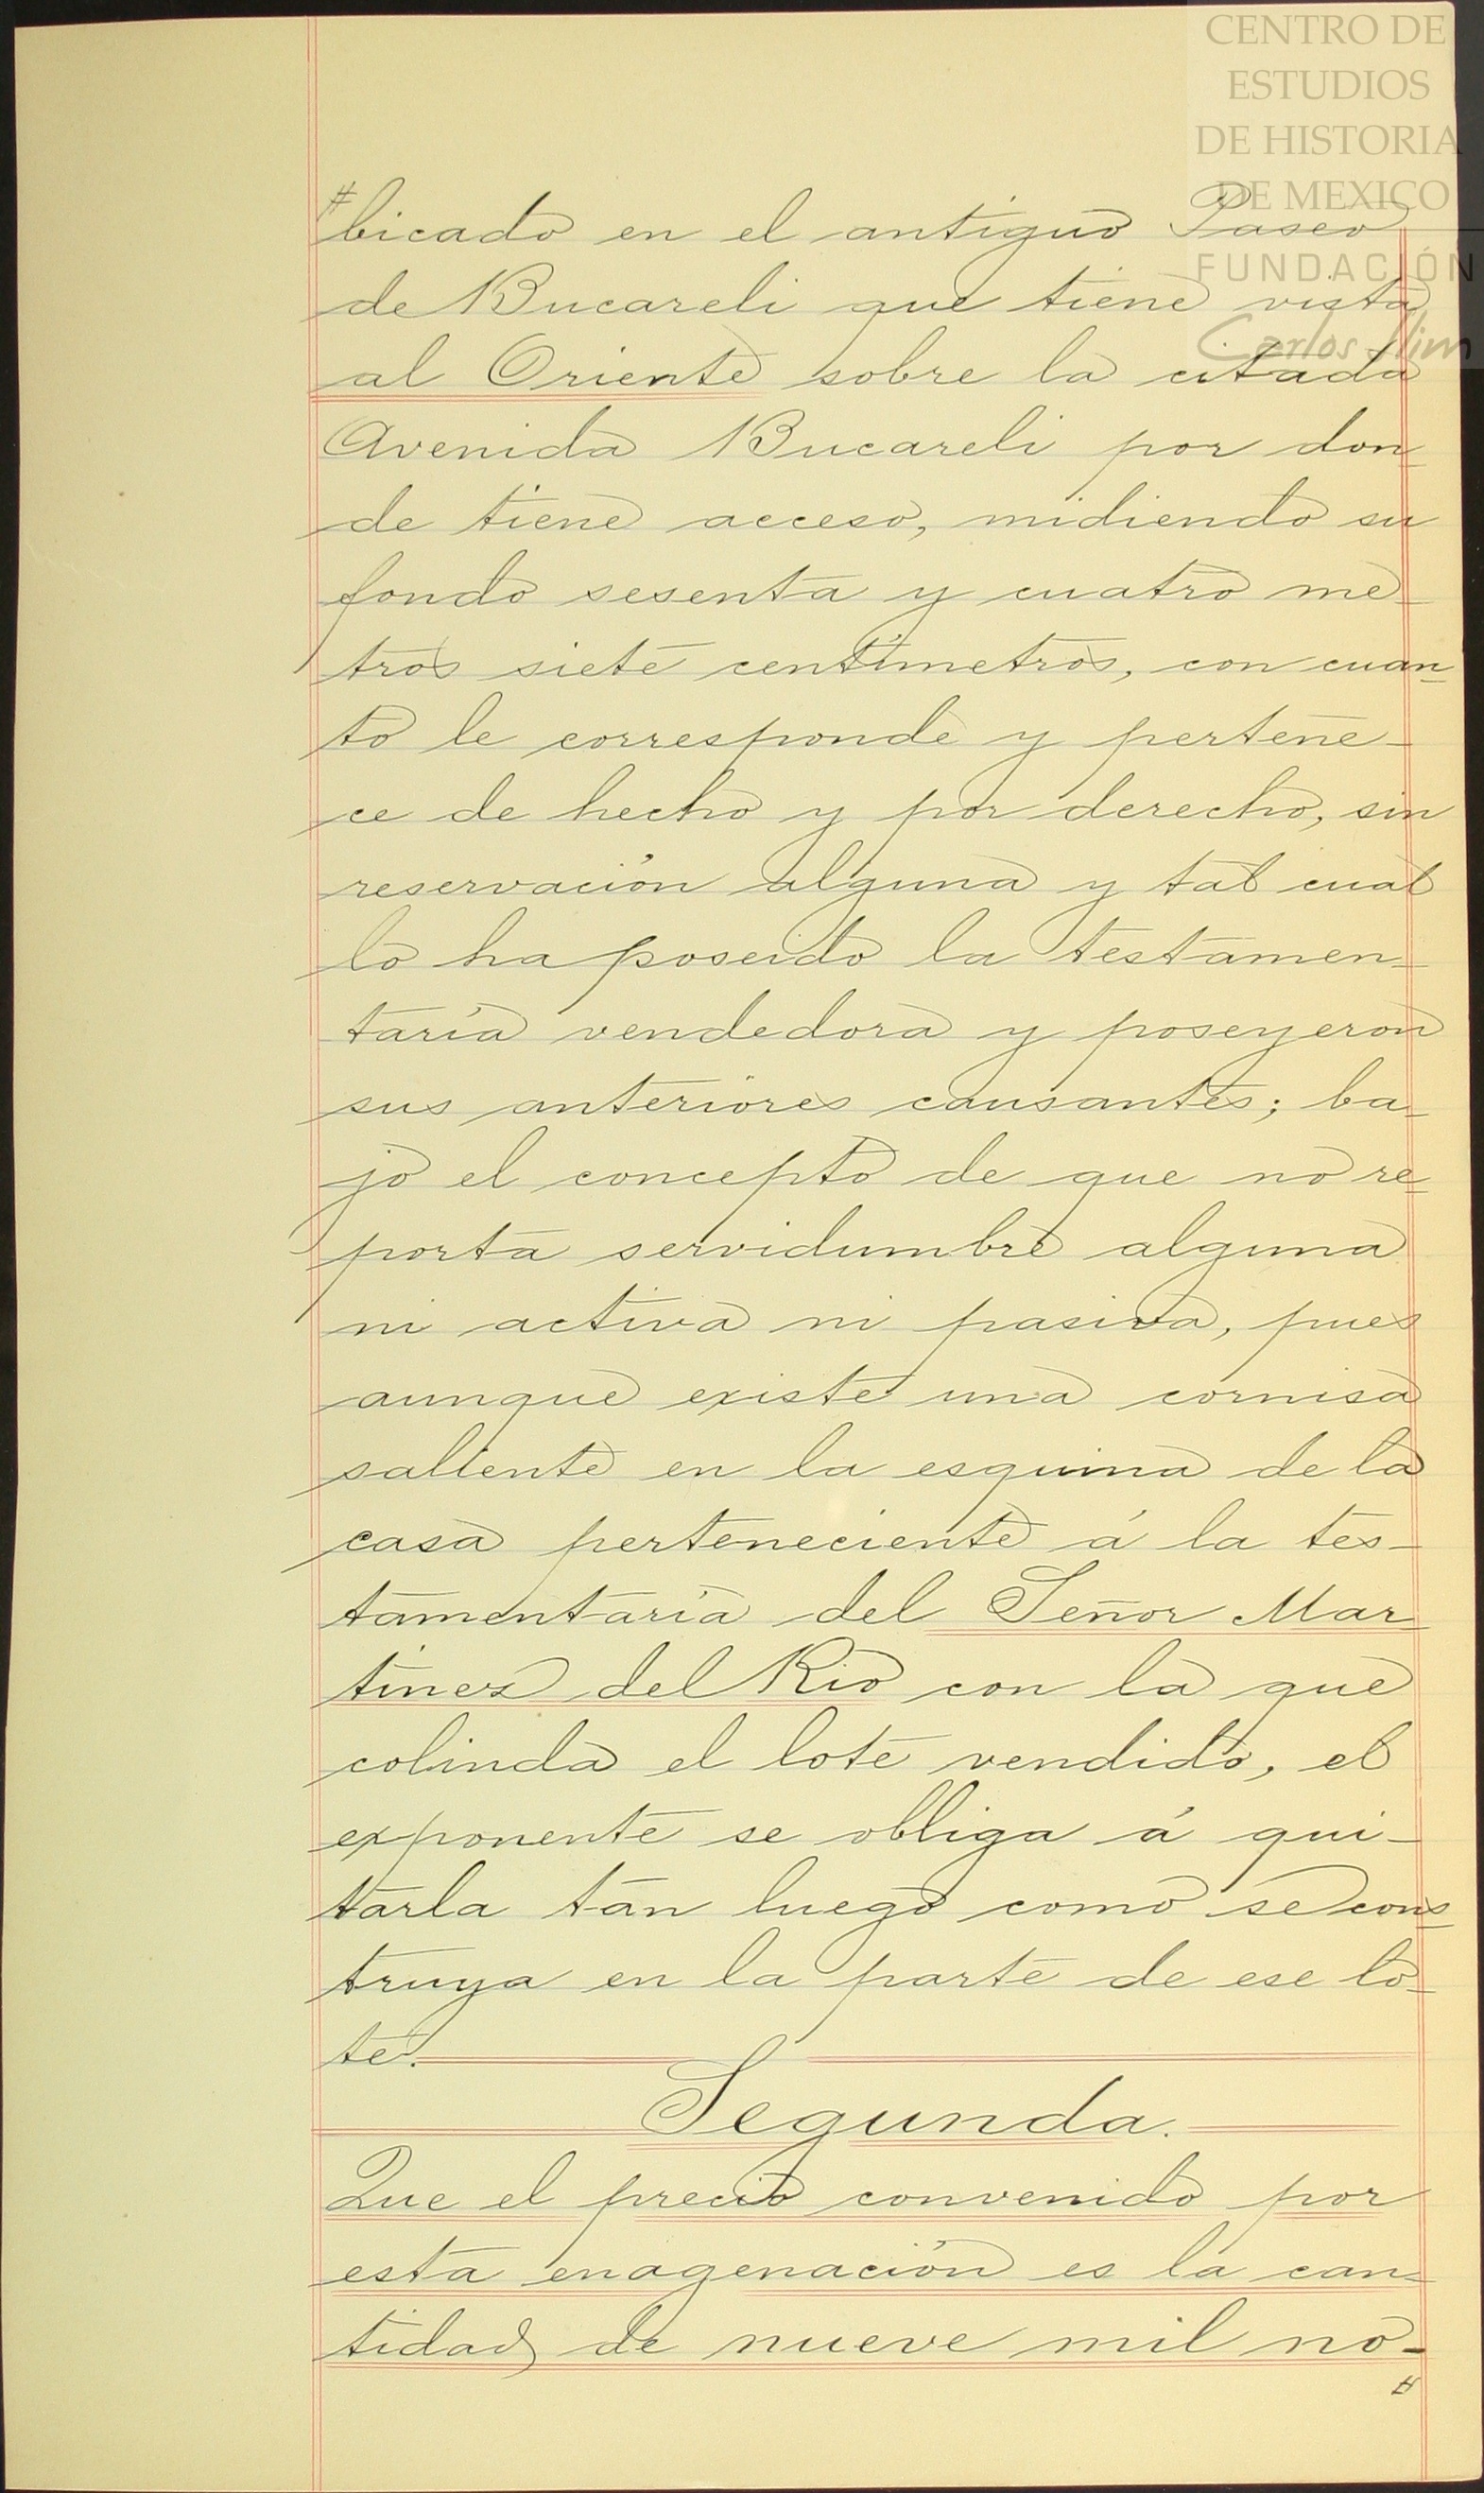 CENTRO DE
ESTUDIOS
DE HISTORIA
DE MEXICO
FUNDACIÓN
Carlos Slim
#bicado en el antiguo Paseo
de Bucareli que tiene vista
al Oriente sobre la citada
Avenida Bucareli por don-
de tiene acceso, midiendo su
fondo sesenta y cuatro me-
tros siete centímetros, con cuan-
to le corresponde y pertene-
ce de hecho y por derecho, sin
reservación alguna y tal cual
lo ha poseido la testamen-
taría vendedora y poseyeron
sus anteriores causantes; ba-
jo el concepto de que no re-
porta servidumbre alguna
ni activa ni pasiva, pues
aunque existe una cornisa
saliente en la esquina de la
casa perteneciente á la tes-
tamentaría del Señor Mar-
tinez del Rio con la que
colinda el lote vendido, el
exponente se obliga á qui-
tarla tan luego como se cons-
truya en la parte de ese lo-
te.
Segunda.
Que el precio convenido por
esta enagenación es la can-
tidad de nueve mil no-
#